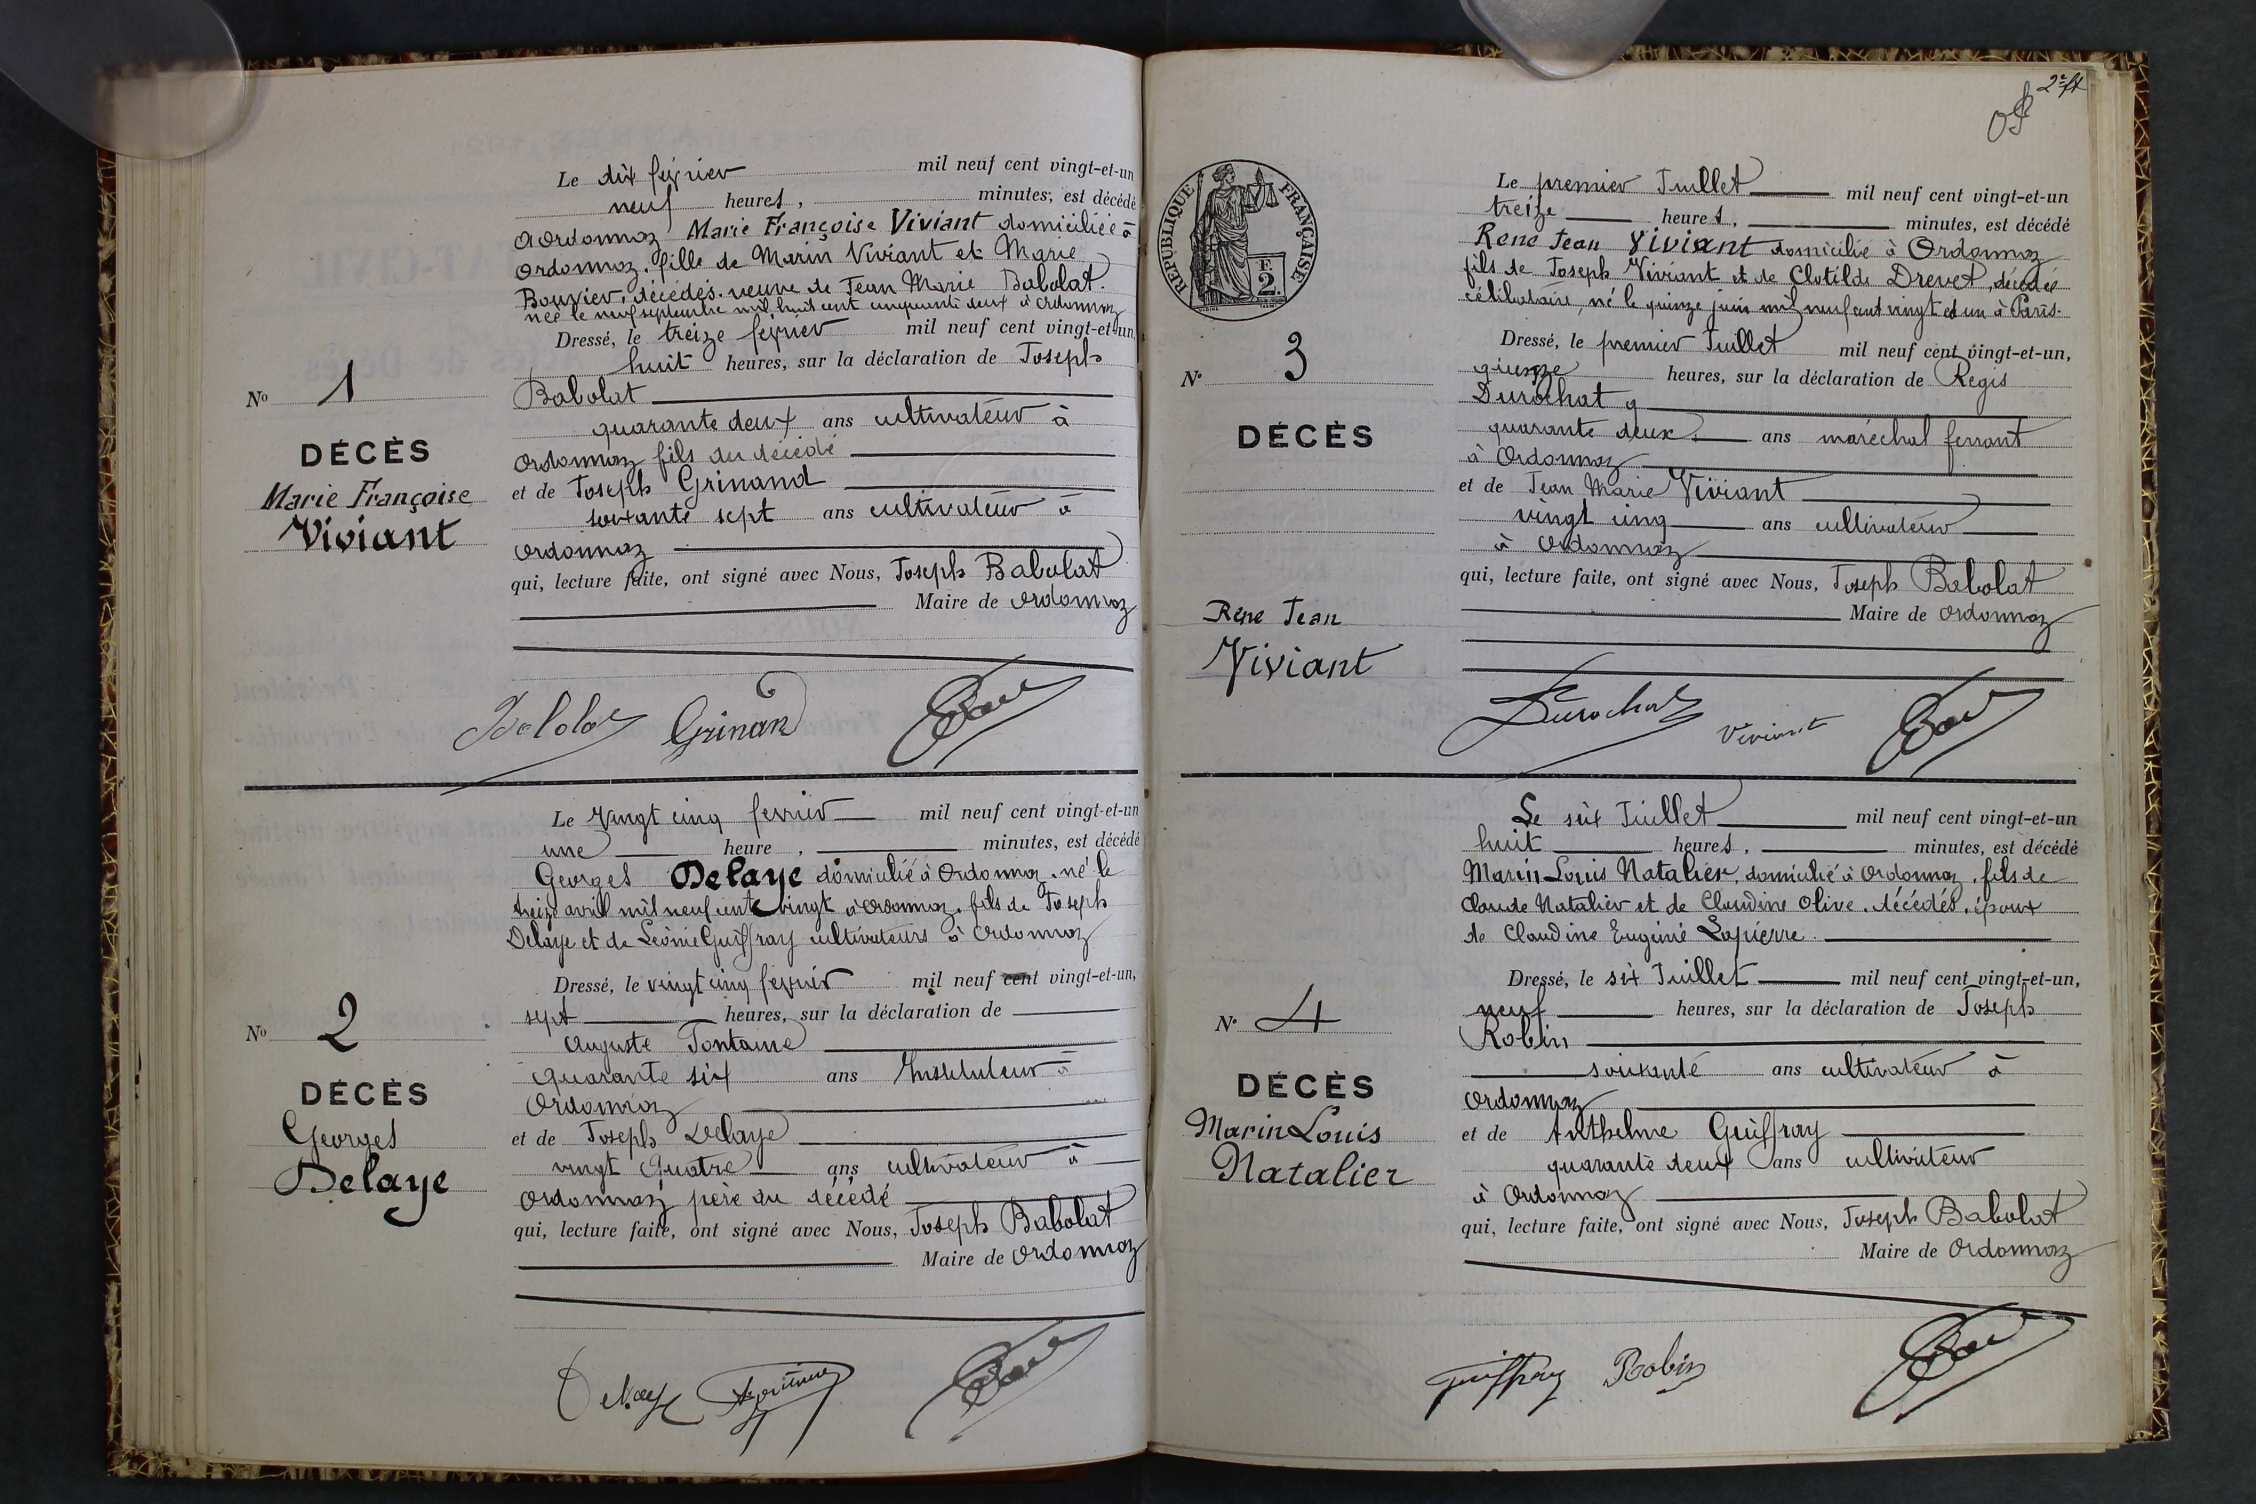 Le dix février mil neuf cent vingt-et-un
neuf heures, minutes, est décédé
à Ordonnaz Marie Françoise Viviant domiciliée à
Ordonnaz, fille de Marin Viviant et Marie
Bouvier, décédés. veuve de Jean Marie Babolat.
née le neuf septembre mil huit cent cinquante deux à Ordonnaz
Dressé, le treize février mil neuf cent vingt-et-un,
huit heures, sur la déclaration de Joseph
Babolat
quarante deux ans cultivateur à
Ordonnaz fils du décédé
et de Joseph Grinand
soixante sept ans cultivateur à
Ordonnaz
qui, lecture faite, ont signé avec Nous, Joseph Babolat
Maire de Ordonnaz
No 1
DÉCÈS
Marie Françoise
Viviant
Babolat Grinand
Le vingt cinq fevrier mil neuf cent vingt-et-un
une heure, minutes, est décédé
Georges Delaye domicilié à Ordonnaz. né le
treize avril mil neuf cent vingt à Ordonnaz. fils de Joseph
Delaye et de Léonie Guiffray cultivateurs à Ordonnaz
Dressé, le vingt cinq fevrier mil neuf cent vingt-et-un,
sept heures, sur la déclaration de
Auguste Fontaine
quarante six ans Instituteur à
Ordonnaz
et de Joseph Delaye
vingt quatre ans cultivateur à
Ordonnaz père du décédé
qui, lecture faite, ont signé avec Nous, Joseph Babolat
Maire de Ordonnaz
No 2
DÉCÈS
Georges
Delaye
Delaye Fontaine
2e ft
RÉPUBLIQUE FRANÇAISE
F.
2.
Le premier Juillet mil neuf cent vingt-et-un
treize heures, minutes, est décédé
René Jean Viviant domicilié à Ordonnaz
fils de Joseph Viviant et de Clotilde Drevet, décédé
célibataire, né le quinze juin mil neuf cent vingt et un à Paris.
Dressé, le premier Juillet mil neuf cent vingt-et-un,
quinze heures, sur la déclaration de Regis
Durochat
quarante deux ans maréchal ferrant
à Ordonnaz
et de Jean Marie Viviant
vingt cinq ans cultivateur
à Ordonnaz
qui, lecture faite, ont signé avec Nous, Joseph Babolat
Maire de Ordonnaz
No 3
DÉCÈS
Réne Jean
Viviant
Durochat Viviant
Le six Juillet mil neuf cent vingt-et-un
huit heures, minutes, est décédé
Marin Louis Natalier, domicilié à Ordonnaz, fils de
Claude Natalier et de Claudine Olive. décédés. époux
de Claudine Eugénie Lapierre.
Dressé, le six Juillet mil neuf cent vingt-et-un,
neuf heures, sur la déclaration de Joseph
Robin
soixante ans cultivateur à
Ordonnaz
et de Anthelme Guiffray
quarante deux ans cultivateur
à Ordonnaz
qui, lecture faite, ont signé avec Nous, Joseph Babolat
Maire de Ordonnaz
No 4
DÉCÈS
Marin Louis
Natalier
Guiffray Robin